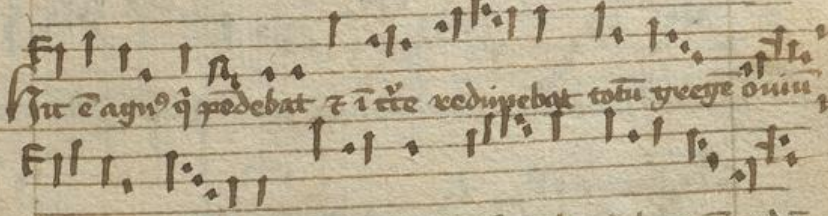 Hic ē agnꝰ q̄ pēdebat ⁊ ī cͬce redimebat totū gregē ouiū